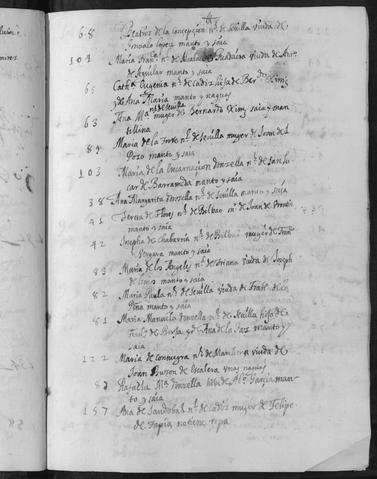 68 Beatris de la Concepcion nl de Sevilla viuda de
Gonzalo Lopez manto y saia
101 Maria Franca nl de Alcala de Guadaira viuda de
de Aguilar manto y saia
65 Catha Eugenia nl de Cadiz hija de Berdo Ximz
y de Ana Maria manto y naguas
63 Ana Ma nl de Sevilla muger de Bernardo Ximz saia y man
tellina
89 Maria de la Torre nl de Sevilla muger de Joan del
Pozo manto y saia
103 Maria de la Encarnacion donzella nl de San lu
car de Barrameda manto y saia
38 Ana Margarita donzella nl de Sevilla manto y saia
41 Teresa de Flores nl de Bilbao mr de Joan de
manto y saia
42 Josepha de Chabarria nl de Bilbao muger de Franco
Vergara manto y saia
83 Maria de los Angeles nl de Triana viuda de Joseph
de manto y saia
82 Maria Paula nl de Sevilla viuda de Franco de
Peña manto y saia
81 Maria Manuela donzella nl de Sevilla hija de
de Borja y de Ana de la Paz manto y
saia
122 Maria de nl de viuda de
Joan de Escalera unas naguas
87 Rafaela Ma donzella hija de Garzia man
to y saia
157 Ana de Sandobal nl de Cadiz muger de Felipe
de Tapia no tiene ropa